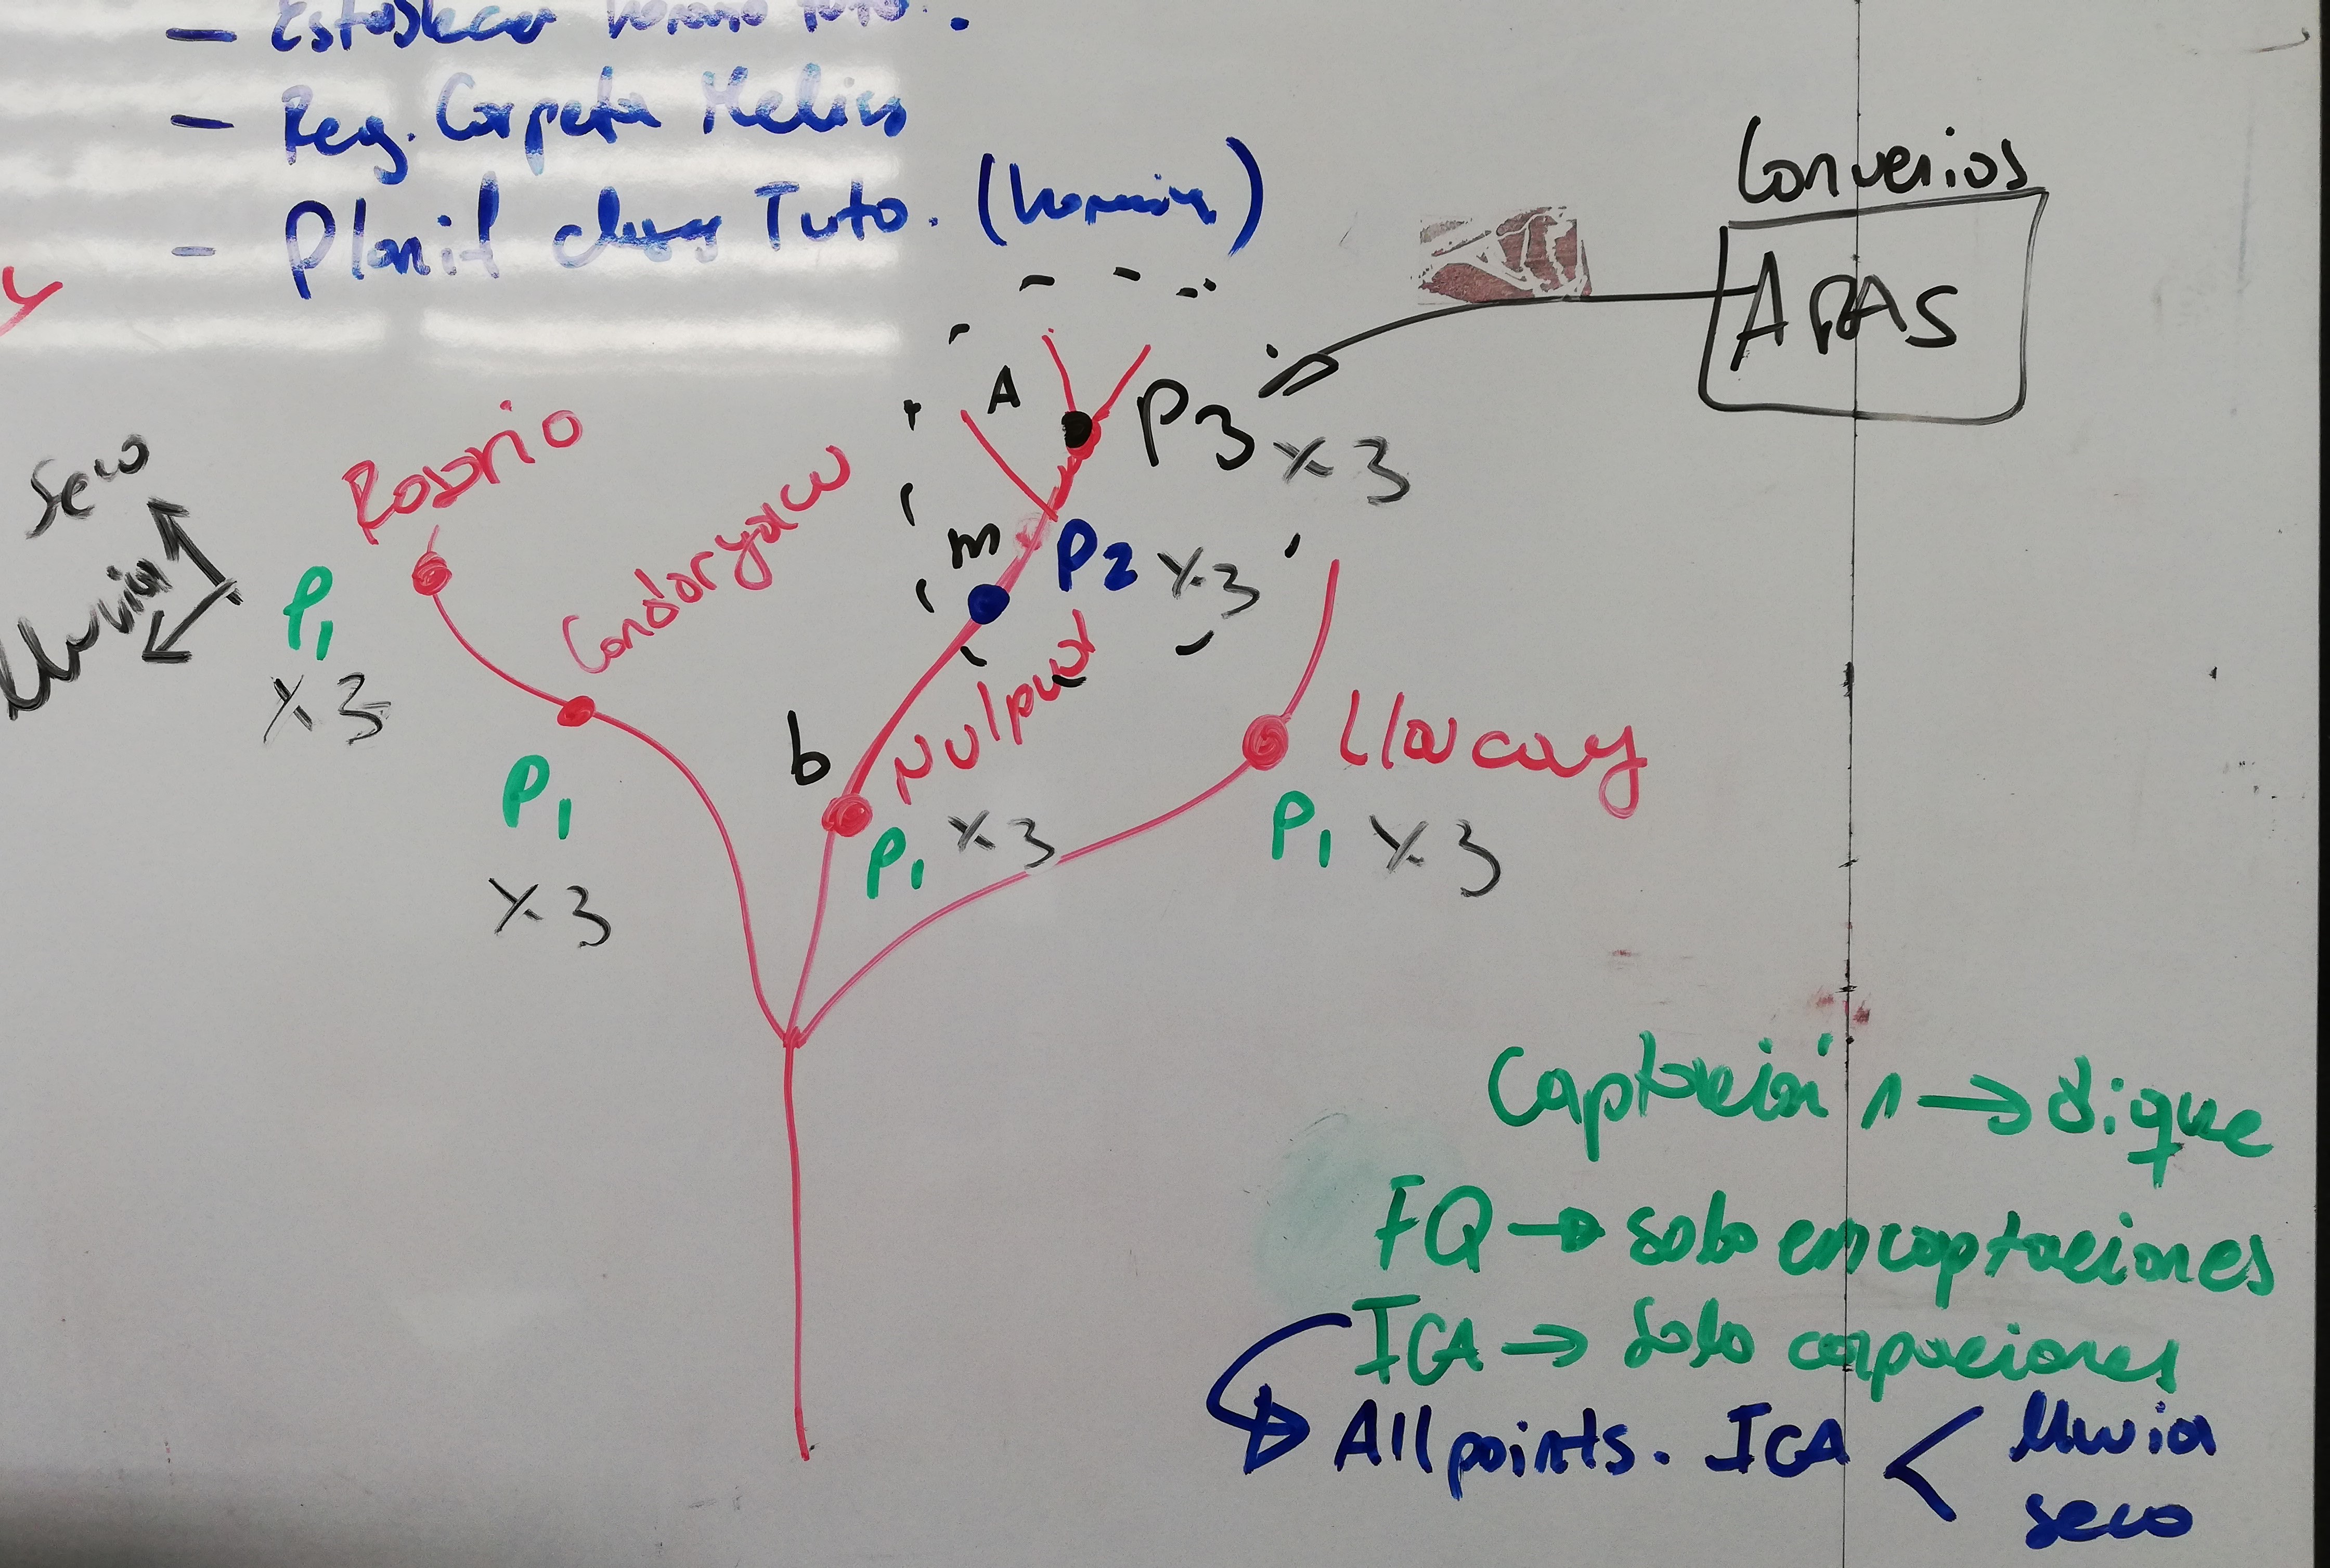 - Establecer horario tuto.
- Reg. Carpeta
- Planif clases Tuto. (horarios)
Convenios
APAS
A
P3 x3
Seco
Lluvia
Rosario
Condoryacu
m
P2 x3
P1
x3
b
Ñulpuct
Llaucay
P1
x3
P1 x3
P1 x3
Captación 1 → dique
FQ → solo en captaciones
ICA → Solo capaciones
All points. ICA < lluvia
seco